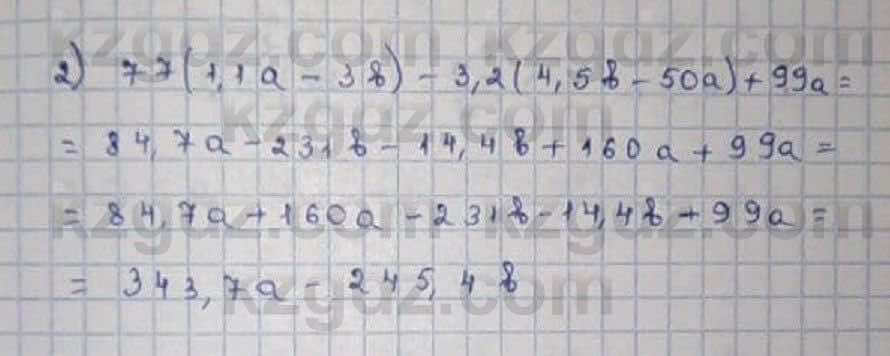 2) 77(1,1a - 3b) - 3,2(4,5b - 50a) + 99a =
= 84,7a - 231b - 14,4b + 160a + 99a =
= 84,7a + 160a - 231b - 14,4b + 99a =
= 343,7a - 245,4b
kzgdz.com